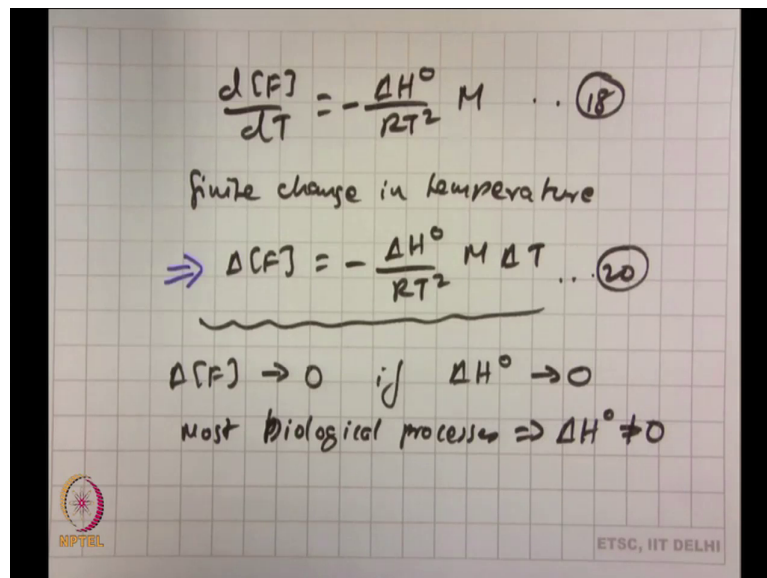 d[F]/dT = - ΔH⁰/RT² M .. (18)
finite change in temperature
⇒ Δ[F] = - ΔH⁰/RT² M ΔT ... (20)
Δ[F] → 0 if ΔH⁰ → 0
Most biological processes ⇒ ΔH⁰ ≠ 0
NPTEL
ETSC, IIT DELHI